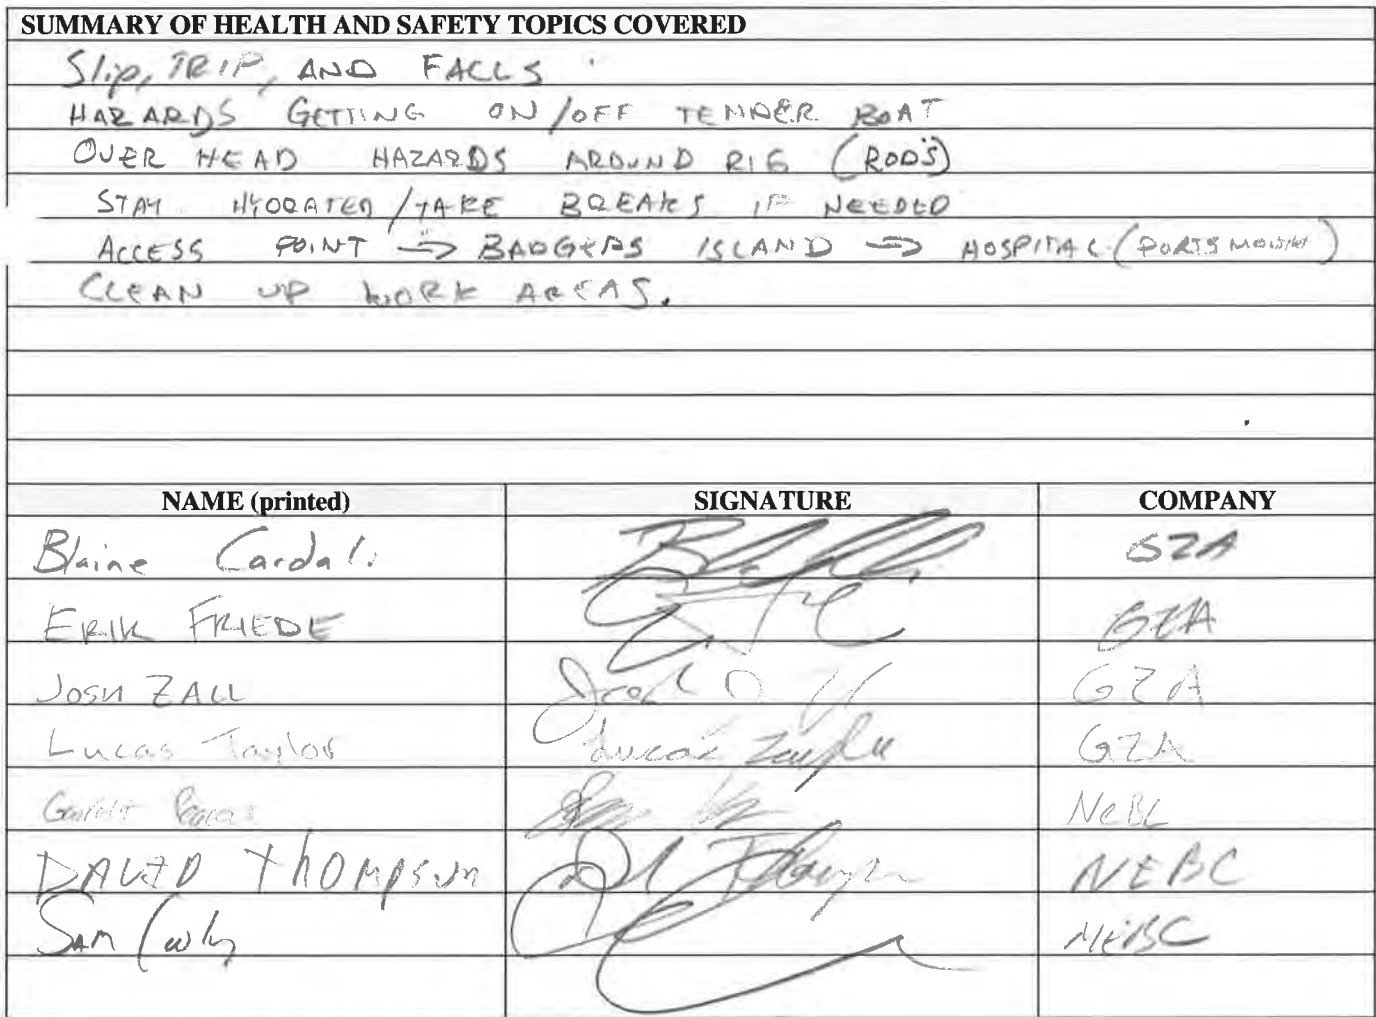 SUMMARY OF HEALTH AND SAFETY TOPICS COVERED
Slip, TRIP, AND FALLS
HAZARDS GETTING ON/OFF TENDER BOAT
OVER HEAD HAZARDS AROUND RIG (ROD'S)
STAY HYDRATED/TAKE BREAKS IF NEEDED
ACCESS POINT → BADGERS ISLAND → HOSPITAL (PORTSMOUTH)
CLEAN UP WORK AREAS.
NAME (printed) SIGNATURE COMPANY
Blaine Cardali GZA
ERIK FRIEDE GZA
JOSH ZALL GZA
Lucas Taylor Lucas Taylor GZA
Garrett NEBC
DAVID THOMPSON NEBC
SAM NEBC